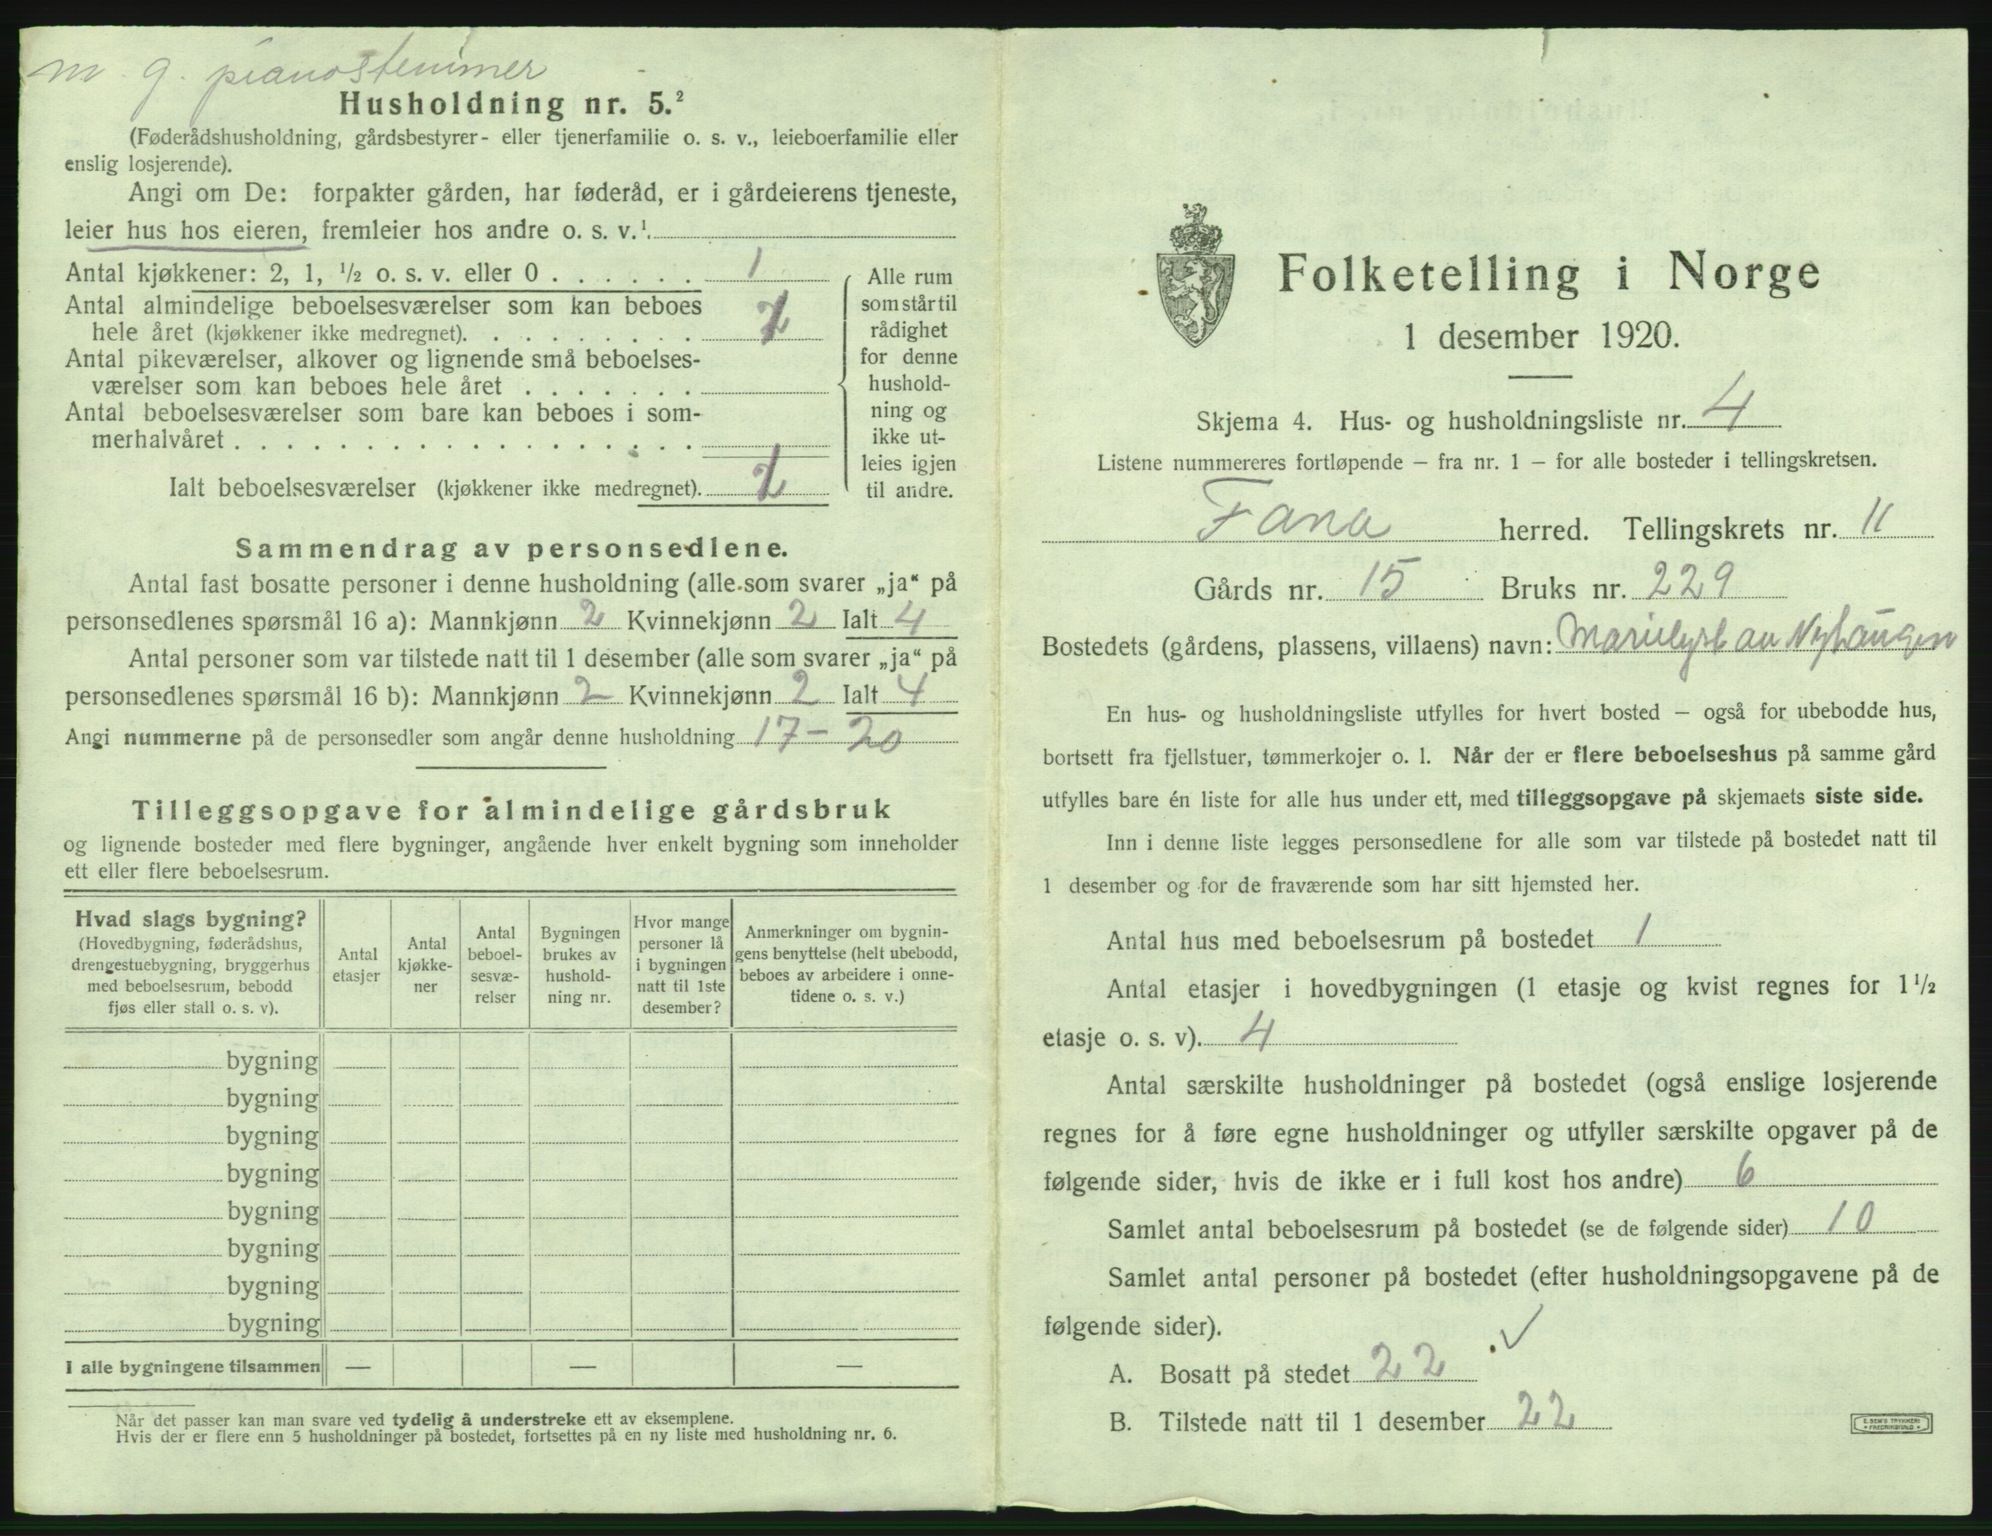 m. g. pianostemmer
Husholdning nr. 5.²
(Føderådshusholdning, gårdsbestyrer- eller tjenerfamilie o. s. v., leieboerfamilie eller
enslig losjerende).
Angi om De: forpakter gården, har føderåd, er i gårdeierens tjeneste,
leier hus hos eieren, fremleier hos andre o. s. v.¹
Antal kjøkkener: 2, 1, ½ o. s. v. eller 0 . . . . . . 1
Antal almindelige beboelsesværelser som kan beboes
hele året (kjøkkener ikke medregnet). . . . . . . . .
Antal pikeværelser, alkover og lignende små beboelses-
værelser som kan beboes hele året . . . . . . .
Antal beboelsesværelser som bare kan beboes i som-
merhalvåret . . . . . . . . . . . . . . . . . .
Ialt beboelsesværelser (kjøkkener ikke medregnet).
Alle rum
som står til
rådighet
for denne
hushold-
ning og
ikke ut-
leies igjen
til andre.
Sammendrag av personsedlene.
Antal fast bosatte personer i denne husholdning (alle som svarer „ja“ på
personsedlenes spørsmål 16 a): Mannkjønn 2 Kvinnekjønn 2 Ialt 4
Antal personer som var tilstede natt til 1 desember (alle som svarer „ja“ på
personsedlenes spørsmål 16 b): Mannkjønn 2 Kvinnekjønn 2 Ialt 4
Angi nummerne på de personsedler som angår denne husholdning 17 - 20
Tilleggsopgave for almindelige gårdsbruk
og lignende bosteder med flere bygninger, angående hver enkelt bygning som inneholder
ett eller flere beboelsesrum.
Hvad slags bygning?
(Hovedbygning, føderådshus,
drengestuebygning, bryggerhus
med beboelsesrum, bebodd
fjøs eller stall o. s. v).
Antal
etasjer
Antal
kjøkke-
ner
Antal
beboel-
sesvæ-
relser
Bygningen
brukes av
hushold-
ning nr.
Hvor mange
personer lå
i bygningen
natt til 1ste
desember?
Anmerkninger om bygnin-
gens benyttelse (helt ubebodd,
beboes av arbeidere i onne-
tidene o. s. v.)
bygning
bygning
bygning
bygning
bygning
bygning
bygning
bygning
I alle bygningene tilsammen — — —
Når det passer kan man svare ved tydelig å understreke ett av eksemplene.
Hvis der er flere enn 5 husholdninger på bostedet, fortsettes på en ny liste med husholdning nr. 6.
Folketelling i Norge
1 desember 1920.
Skjema 4. Hus- og husholdningsliste nr. 4
Listene nummereres fortløpende – fra nr. 1 – for alle bosteder i tellingskretsen.
Fana herred. Tellingskrets nr. 11
Gårds nr. 15 Bruks nr. 229
Bostedets (gårdens, plassens, villaens) navn: Marielyst av Nyhaugen
En hus- og husholdningsliste utfylles for hvert bosted – også for ubebodde hus,
bortsett fra fjellstuer, tømmerkojer o. l. Når der er flere beboelseshus på samme gård
utfylles bare én liste for alle hus under ett, med tilleggsopgave på skjemaets siste side.
Inn i denne liste legges personsedlene for alle som var tilstede på bostedet natt til
1 desember og for de fraværende som har sitt hjemsted her.
Antal hus med beboelsesrum på bostedet 1
Antal etasjer i hovedbygningen (1 etasje og kvist regnes for 1½
etasje o. s. v). 4
Antal særskilte husholdninger på bostedet (også enslige losjerende
regnes for å føre egne husholdninger og utfyller særskilte opgaver på de
følgende sider, hvis de ikke er i full kost hos andre) 6
Samlet antal beboelsesrum på bostedet (se de følgende sider) 10
Samlet antal personer på bostedet (efter husholdningsopgavene på de
følgende sider).
A. Bosatt på stedet 22
B. Tilstede natt til 1 desember 22
E. SEM'S TRYKKERI
FREDRIKSHALD